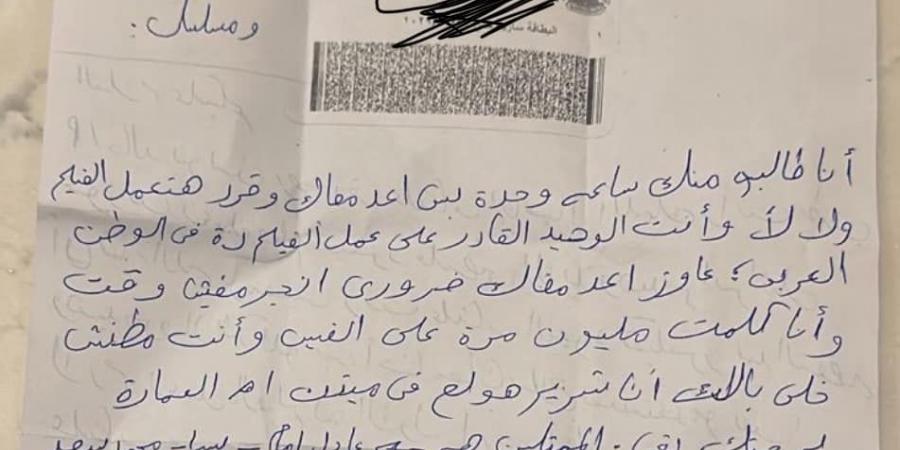 ومسلسل :
البطاقة سارية
أنا طالبو منك ساعه وحدة بس اعد معاك وقرر هتعمل الفيلم
ولا لأ وأنت الوحيد القادر على عمل الفيلم دة فى الوطن
العربى ؛ عاوز اعد معاك ضرورى انجز مفيش وقت
وأنا كلمت مليون مرة على الفيس وأنت مطنش
خلى بالك أنا شريز هولع فى ميتين ام العمارة
عادل امام